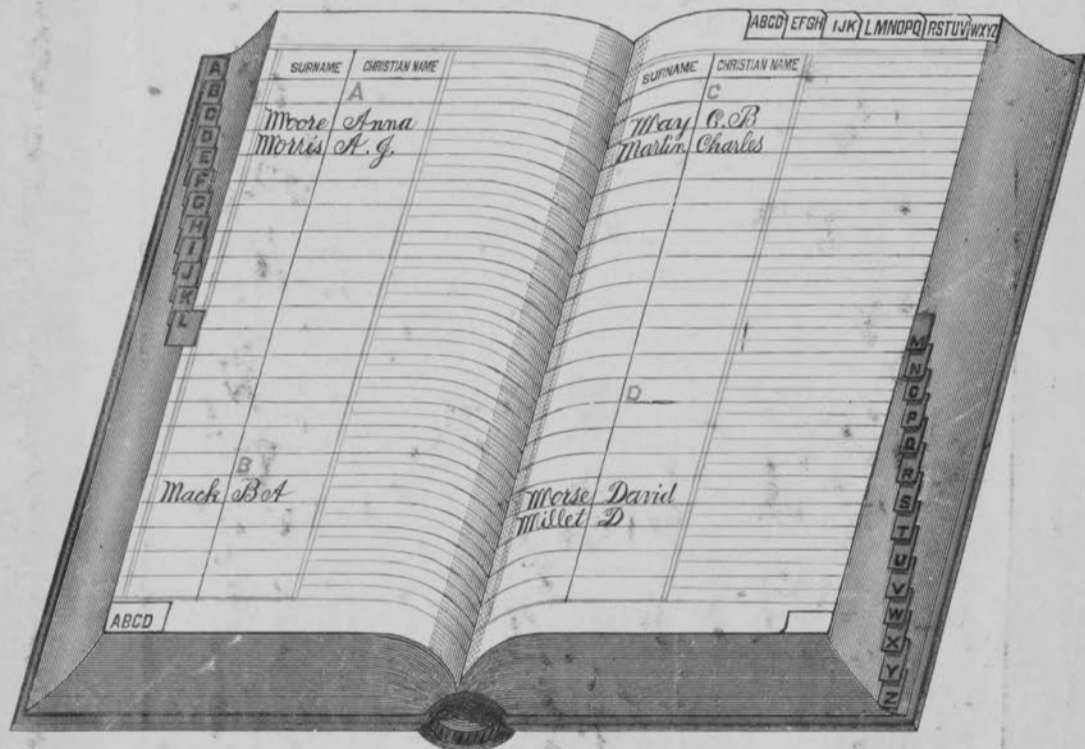 ABCD EFGH IJK LMNOPQ RSTUV WXYZ
A
B
C
D
E
F
G
H
I
J
K
L
SURNAME CHRISTIAN NAME
A
Moore Anna
Morris A. J.
B
Mack B A
ABCD
SURNAME CHRISTIAN NAME
C
May C. B
Martin Charles
D
Morse David
Millet D
M
N
O
P
Q
R
S
T
U
V
W
X
Y
Z